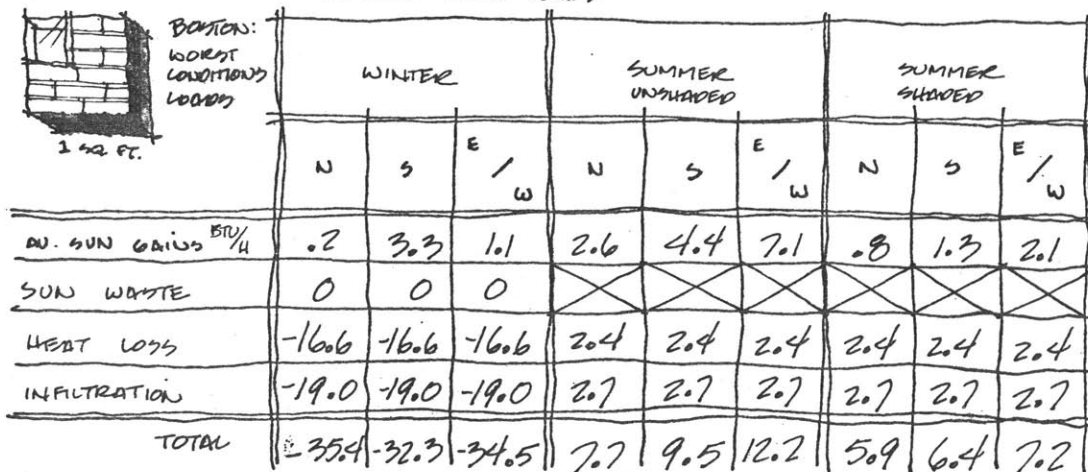 BOSTON:
WORST
CONDITIONS
LOADS
1 SQ. FT.
WINTER SUMMER UNSHADED SUMMER SHADED
N S E/W N S E/W N S E/W
AV. SUN GAINS BTU/H .2 3.3 1.1 2.6 4.4 7.1 .8 1.3 2.1
SUN WASTE 0 0 0
HEAT LOSS -16.6 -16.6 -16.6 2.4 2.4 2.4 2.4 2.4 2.4
INFILTRATION -19.0 -19.0 -19.0 2.7 2.7 2.7 2.7 2.7 2.7
TOTAL -35.4 -32.3 -34.5 7.7 9.5 12.2 5.9 6.4 7.2